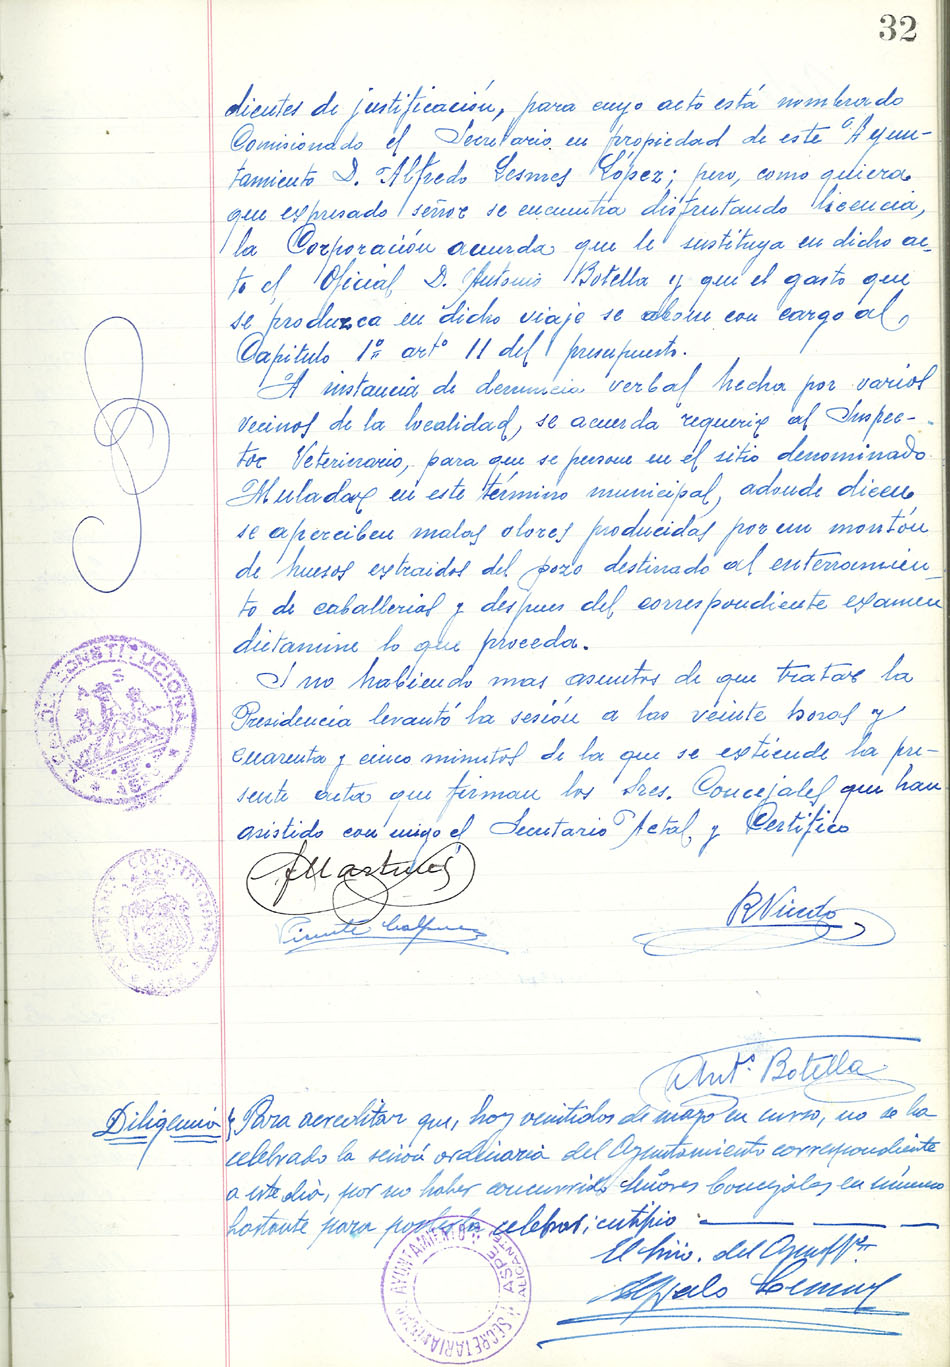 32
dientes de justificación, para cuyo acto está nombrado
Comisionado el Secretario en propiedad de este Ayun-
tamiento D. Alfredo Lesmes López; pero, como quiera
que expresado señor se encuentra disfrutando licencia,
la Corporación acuerda que le sustituya en dicho ac-
to el Oficial D. Antonio Botella y que el gasto que
se produzca en dicho viaje se abone con cargo al
Capitulo 1º artº 11 del presupuesto.
A instancia de denuncia verbal hecha por varios
vecinos de la localidad, se acuerda requerir al Inspec-
tor Veterinario, para que se persone en el sitio denominado
Muladar en este término municipal, adonde dicen
se aperciben malos olores producidas por un montón
de huesos extraidos del pozo destinado al enterramien-
to de caballerias y despues del correspondiente examen
dictamine lo que proceda.
I no habiendo mas asuntos de que tratar la
Presidencia levantó la sesión a las veinte horas y
cuarenta y cinco minutos de la que se extiende la pre-
sente acta que firman los Sres. Concejales que han
asistido con migo el Secretario Actal, y Certifico
Vicente
Antº Botella
Diligencia
Para acreditar que, hoy veintidos de mayo en curso, no se ha
celebrado la sesión ordinaria del Ayuntamiento correspondiente
a este dia, por no haber concurrido Señores Concejales en número
bastante para poderla celebrar; certifico
El Srio. del Ayuntº
Alfredo Lesmes
SECRETARIA
AYUNTAMIENTO
ASPE
ALICANTE